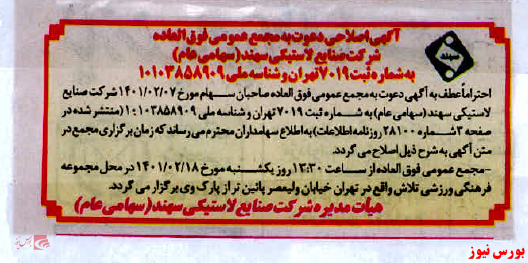 آگهی اصلاحی دعوت به مجمع عمومی فوق العاده
شرکت صنایع لاستیکی سهند (سهامی عام)
به شماره ثبت ۷۰۱۹ تهران و شناسه ملی ۱۰۱۰۳۸۵۸۹۰۹
سهند
احتراماً عطف به آگهی دعوت به مجمع عمومی فوق العاده صاحبان سهام مورخ ۱۴۰۱/۰۲/۰۷ شرکت صنایع
لاستیکی سهند (سهامی عام) به شماره ثبت ۷۰۱۹ تهران و شناسه ملی ۱۰۱۰۳۸۵۸۹۰۹ (منتشر شده در
صفحه ۳ شماره ۲۸۱۰۰ روزنامه اطلاعات) به اطلاع سهامداران محترم می رساند که زمان برگزاری مجمع در
متن آگهی به شرح ذیل اصلاح می گردد.
-مجمع عمومی فوق العاده از ساعت ۱۳:۳۰ روز یکشنبه مورخ ۱۴۰۱/۰۲/۱۸ در محل مجموعه
فرهنگی ورزشی تلاش واقع در تهران خیابان ولیعصر پائین تر از پارک وی برگزار می گردد.
هیأت مدیره شرکت صنایع لاستیکی سهند (سهامی عام)
بورس نیوز
بورس نیوز